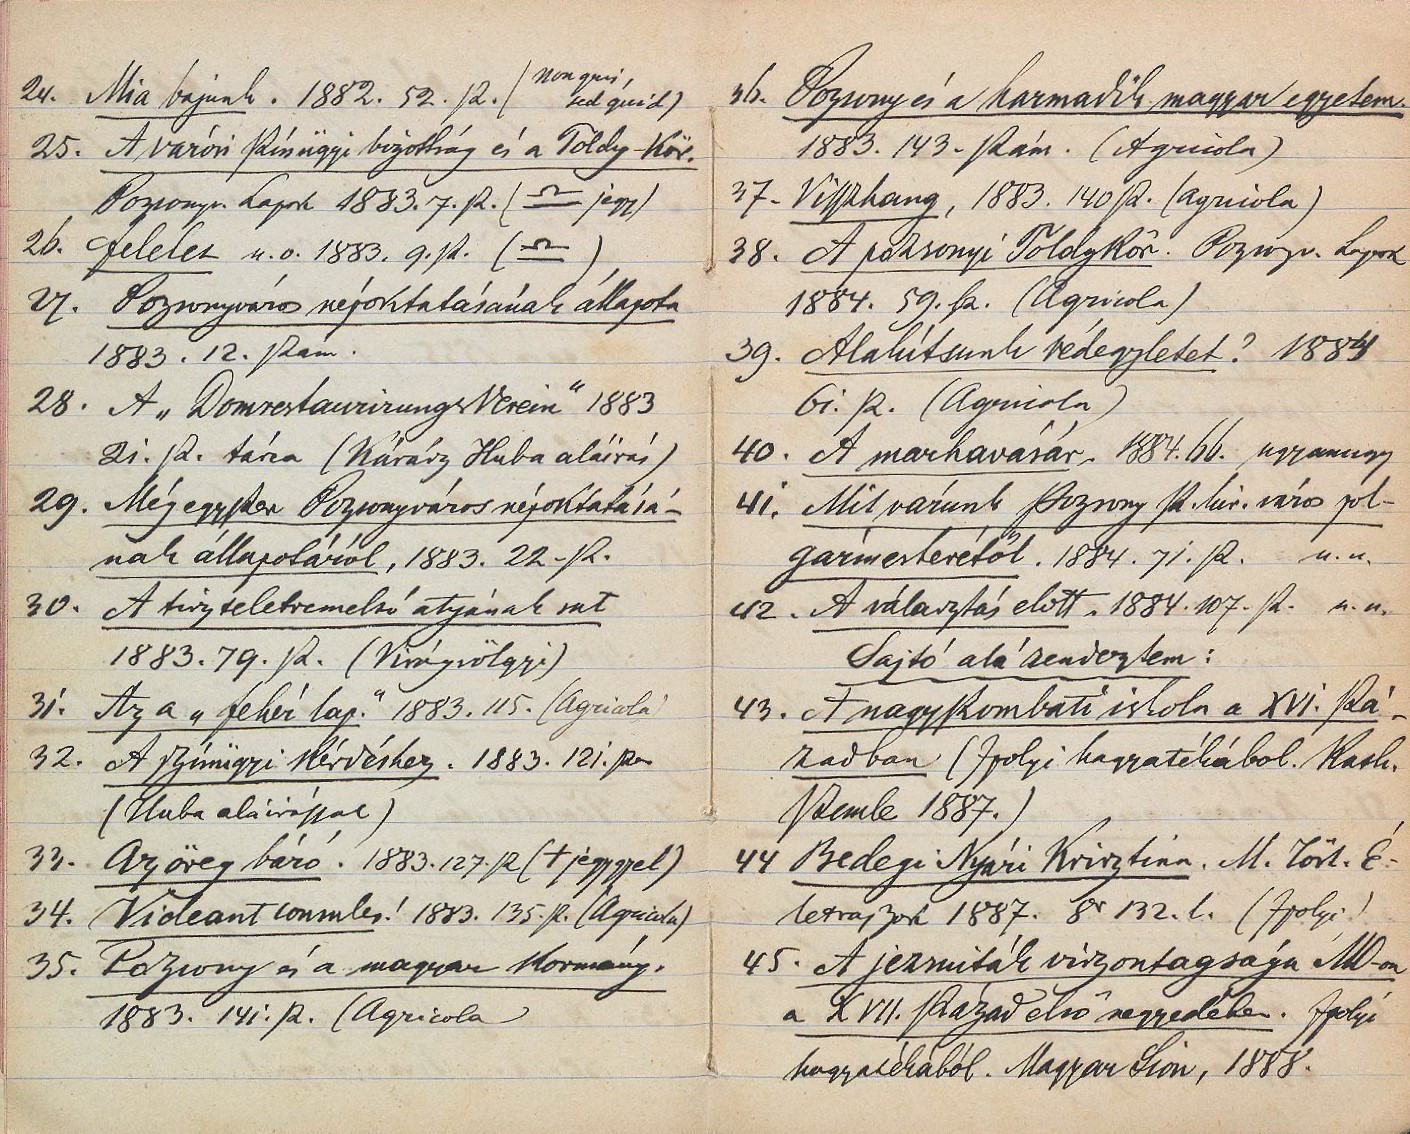 24. Mia bajunk. 1882. 52. sz. (non quis,
sed quid)
25. A városi színügyi bizottság és a Toldy-Kör.
Pozsonyv. Lapok 1883. 7. sz. (♎ jegy)
26. felelet u. o. 1883. 9. sz. (♎)
27. Pozsonyváros népoktatásának állapota
1883. 12. szám.
28. A „Domrestaurirungs Verein“ 1883
21. sz. tárca (Huba aláirás)
29. Még egyszer Pozsonyváros népoktatásá-
nak állapotáról, 1883. 22. sz.
30. A tisztelemelső atyának
1883. 79. sz. (Virágvölgyi)
31. Az a „fehér lap.“ 1883. 115. (Agricola)
32. A színügyi kérdéshez. 1883. 121. sz.
(Huba aláirással)
33. Az öreg báró. 1883. 127. sz (+ jegygyel)
34. Videant consules! 1883. 135. sz. (Agricola)
35. Pozsony és a magyar kormány.
1883. 141. sz. (Agricola)
36. Pozsony és a harmadik magyar egyetem.
1883. 143. szám. (Agricola)
37. Visszhang, 1883. 140 sz. (Agricola)
38. A pozsonyi Toldykör. Pozsonyv. Lapok
1884. 59. sz. (Agricola)
39. Alakítsunk védegyletet? 1884
61. sz. (Agricola)
40. A marhavásár. 1884. 66. ugyanugy
41. Mit várunk Pozsony sz. kir. város pol-
gármesterétől. 1884. 71. sz. u. u.
42. A választás előtt. 1884. 107. sz. u. u.
Sajtó alá rendeztem:
43. A nagyszombati iskola a XVI. szá-
zadban (Ipolyi hagyatékából. Kath.
Szemle 1887.)
44 Bedegi Nyári Krisztina. M. Tört. É-
letrajzok 1887. 8r 132. l. (Ipolyi)
45. A jezsuiták viszontagsága MO-on
a XVII. század első negyedében. Ipolyi
hagyatékából. Magyar Sion, 1888.